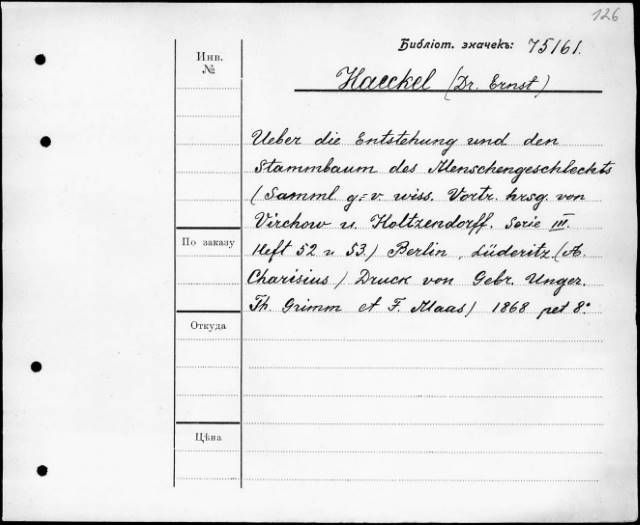 126
Библіот. значекъ: 75161.
Инв.
№
Haeckel (Dr. Ernst)
Ueber die Entstehung und den
Stammbaum des Menschengeschlechts
(Samml g.-v. wiss. Vortr. hrsg. von
Virchow u. Holtzendorff. Serie III.
По заказу
Heft 52 u 53.) Berlin, Lüderitz (A.
Charisius) Druck von Gebr. Unger.
Th. Grimm et F. Maas) 1868 pet 8.°
Откуда
Цѣна